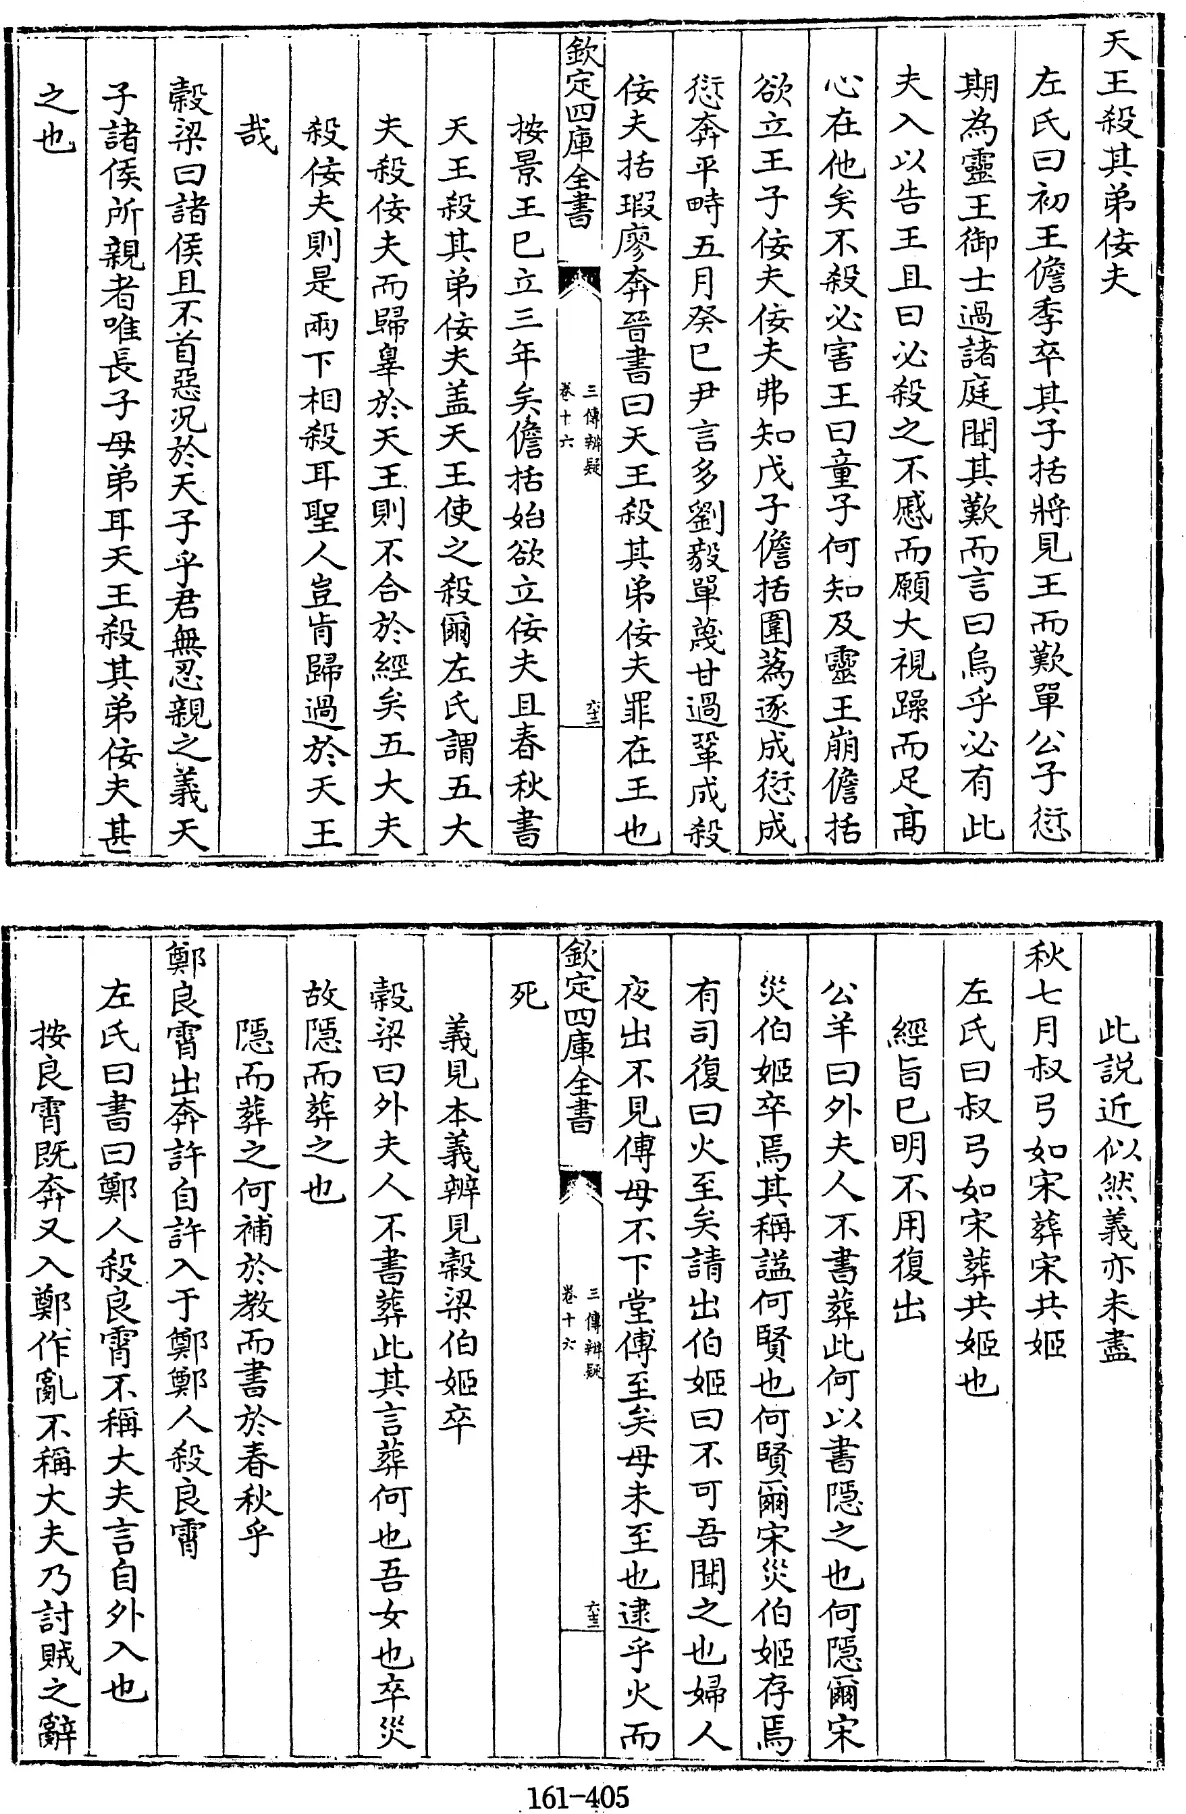 天王殺其弟佞夫
左氏曰初王儋季卒其子括將見王而歎單公子愆
期為靈王御士過諸庭聞其歎而言曰烏乎必有此
夫入以告王且曰必殺之不慼而願大視躁而足高
心在他矣不殺必害王曰童子何知及靈王崩儋括
欲立王子佞夫佞夫弗知戊子儋括圍蒍逐成愆成
愆奔平畤五月癸巳尹言多劉毅單蔑甘過鞏成殺
佞夫括瑕廖奔晉書曰天王殺其弟佞夫罪在王也
欽定四庫全書
三傳辨疑
卷十六
六十三
按景王已立三年矣儋括始欲立佞夫且春秋書
天王殺其弟佞夫盖天王使之殺爾左氏謂五大
夫殺佞夫而歸辠於天王則不合於經矣五大夫
殺佞夫則是兩下相殺耳聖人豈肯歸過於天王
哉
榖梁曰諸侯且不首惡况於天子乎君無忍親之義天
子諸侯所親者唯長子母弟耳天王殺其弟佞夫甚
之也
此說近似然義亦未盡
秋七月叔弓如宋葬宋共姬
左氏曰叔弓如宋葬共姬也
經旨已明不用復出
公羊曰外夫人不書葬此何以書隱之也何隱爾宋
災伯姬卒焉其稱謚何賢也何賢爾宋災伯姬存焉
有司復曰火至矣請出伯姬曰不可吾聞之也婦人
夜出不見傅母不下堂傅至矣母未至也逮乎火而
欽定四庫全書
三傳辨疑
卷十六
六十三
死
義見本義辨見榖梁伯姬卒
榖梁曰外夫人不書葬此其言葬何也吾女也卒災
故隱而葬之也
隱而葬之何補於教而書於春秋乎
鄭良霄出奔許自許入于鄭鄭人殺良霄
左氏曰書曰鄭人殺良霄不稱大夫言自外入也
按良霄既奔又入鄭作亂不稱大夫乃討賊之辭
161-405